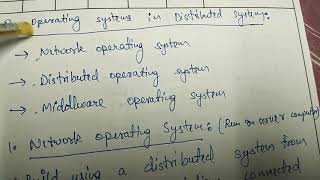 Operating systems in Distributed System:
→ Network operating system
→ Distributed operating system
→ Middlware operating system
1. Network Operating System: (Run on server computer)
Build using a distributed system from
connected